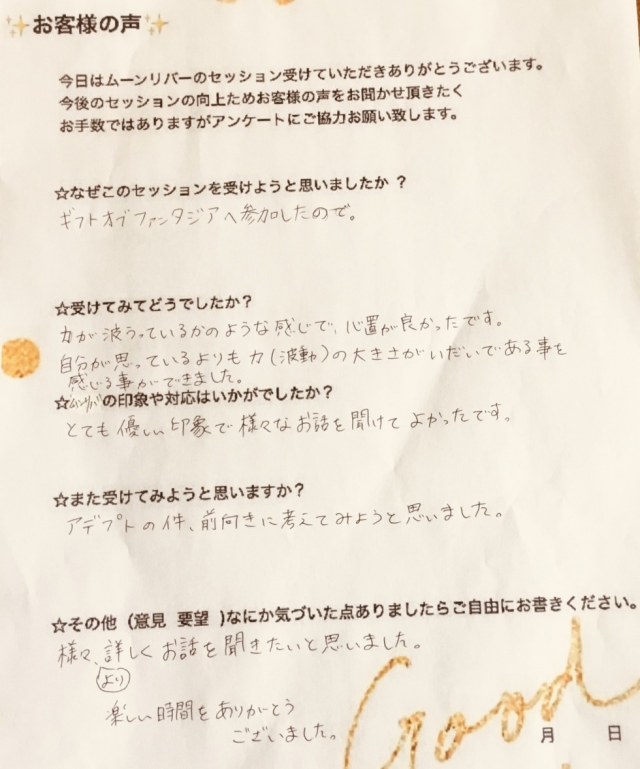 ✨お客様の声✨
今日はムーンリバーのセッション受けていただきありがとうございます。
今後のセッションの向上ためお客様の声をお聞かせ頂きたく
お手数ではありますがアンケートにご協力お願い致します。
☆なぜこのセッションを受けようと思いましたか ?
ギフトオブファンタジアへ参加したので。
☆受けてみてどうでしたか?
力が波うっているかのような感じで、心置が良かったです。
自分が思っているよりも力(波動)の大きさがいだいである事を
感じる事ができました。
☆ムーンリバーの印象や対応はいかがでしたか?
とても優しい印象で様々なお話を聞けてよかったです。
☆また受けてみようと思いますか?
アデプトの件、前向きに考えてみようと思いました。
☆その他 (意見 要望 )なにか気づいた点ありましたらご自由にお書きください。
様々、詳しくお話を聞きたいと思いました。
より
楽しい時間をありがとう
ございました。
Good
月 日